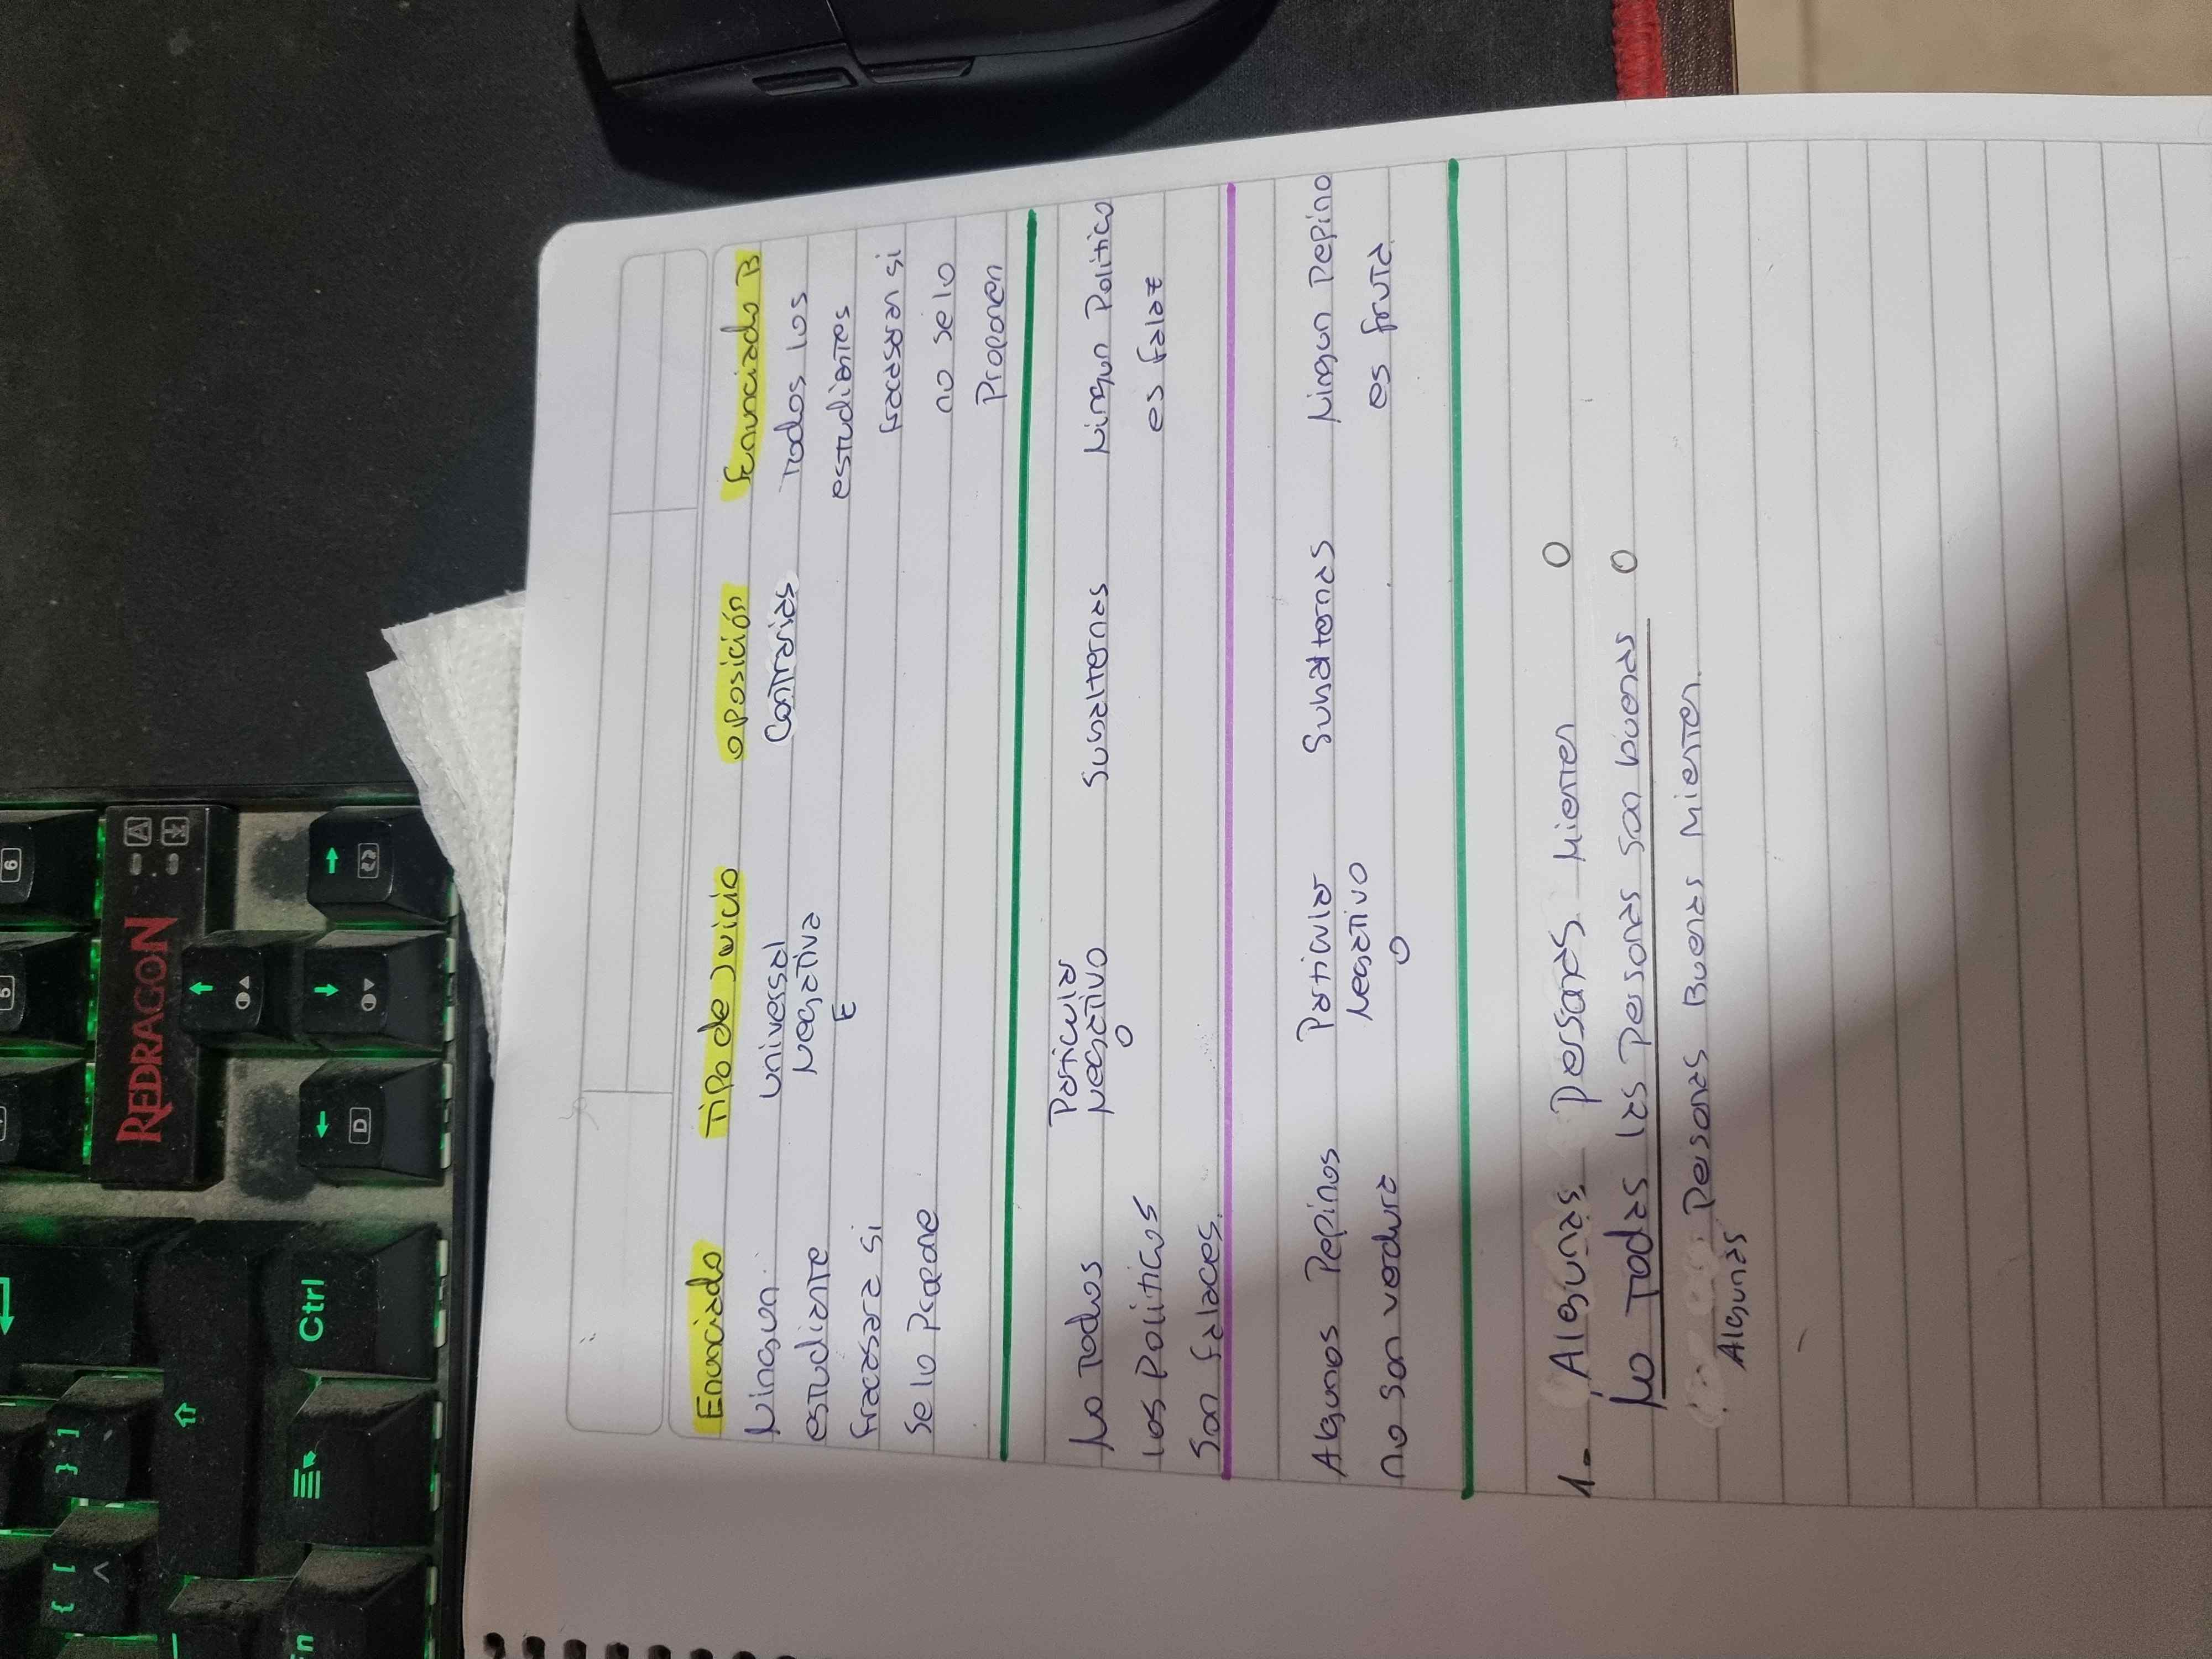 Enunciado Tipo de Juicio oposición Enunciado B
Ningun universal Contrarias Todos los
estudiante Negativa estudiantes
fracasara si E fracasaran si
se lo propone no se lo
Proponen
No Todos Particular Subalternas Ningun Politico
los Politicos Negativo es falaz
Son falaces. O
Algunos Pepinos Particular Subalternas Ningun Pepino
no son verdura Negativo es fruta.
O
1- Algunas Personas Mienten O
No Todas las Personas son buenas O
Personas Buenas Mienten.
Algunas
REDRAGON
Ctrl
D
A
6
5
} ]
{ [
^
n